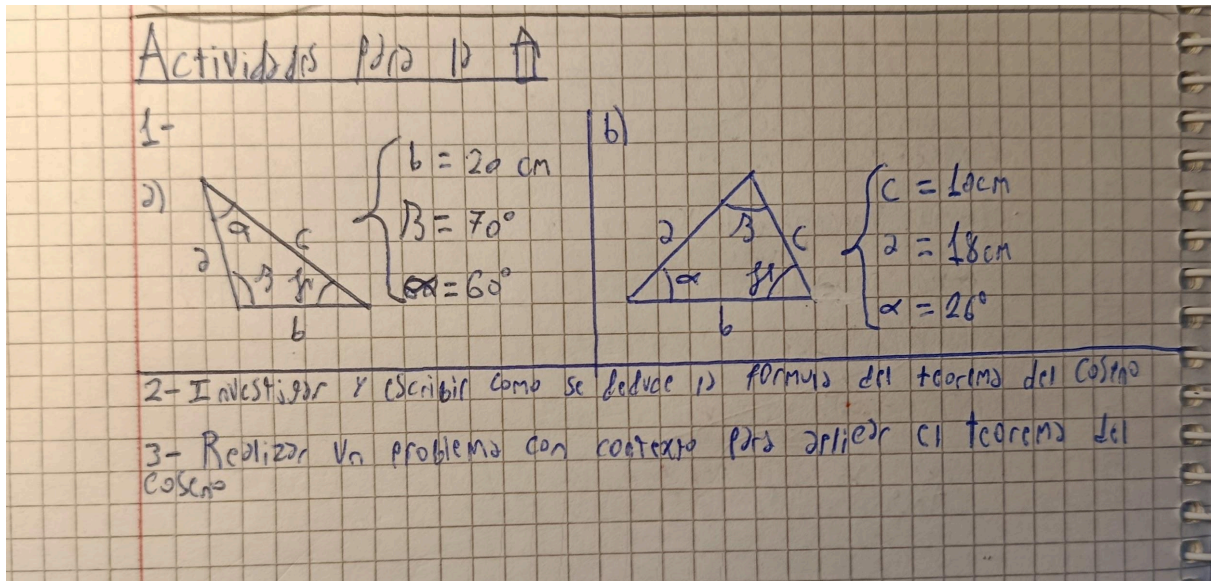 Actividades para la
1-
a)
a
α
c
β
γ
b
b = 20 cm
β = 70°
= 60°
b)
a
β
c
α
γ
b
c = 10cm
a = 18cm
α = 26°
2- Investigar y escribir como se deduce la formula del teorema del coseno
3- Realizar un problema con contexto para aplicar el teorema del
coseno